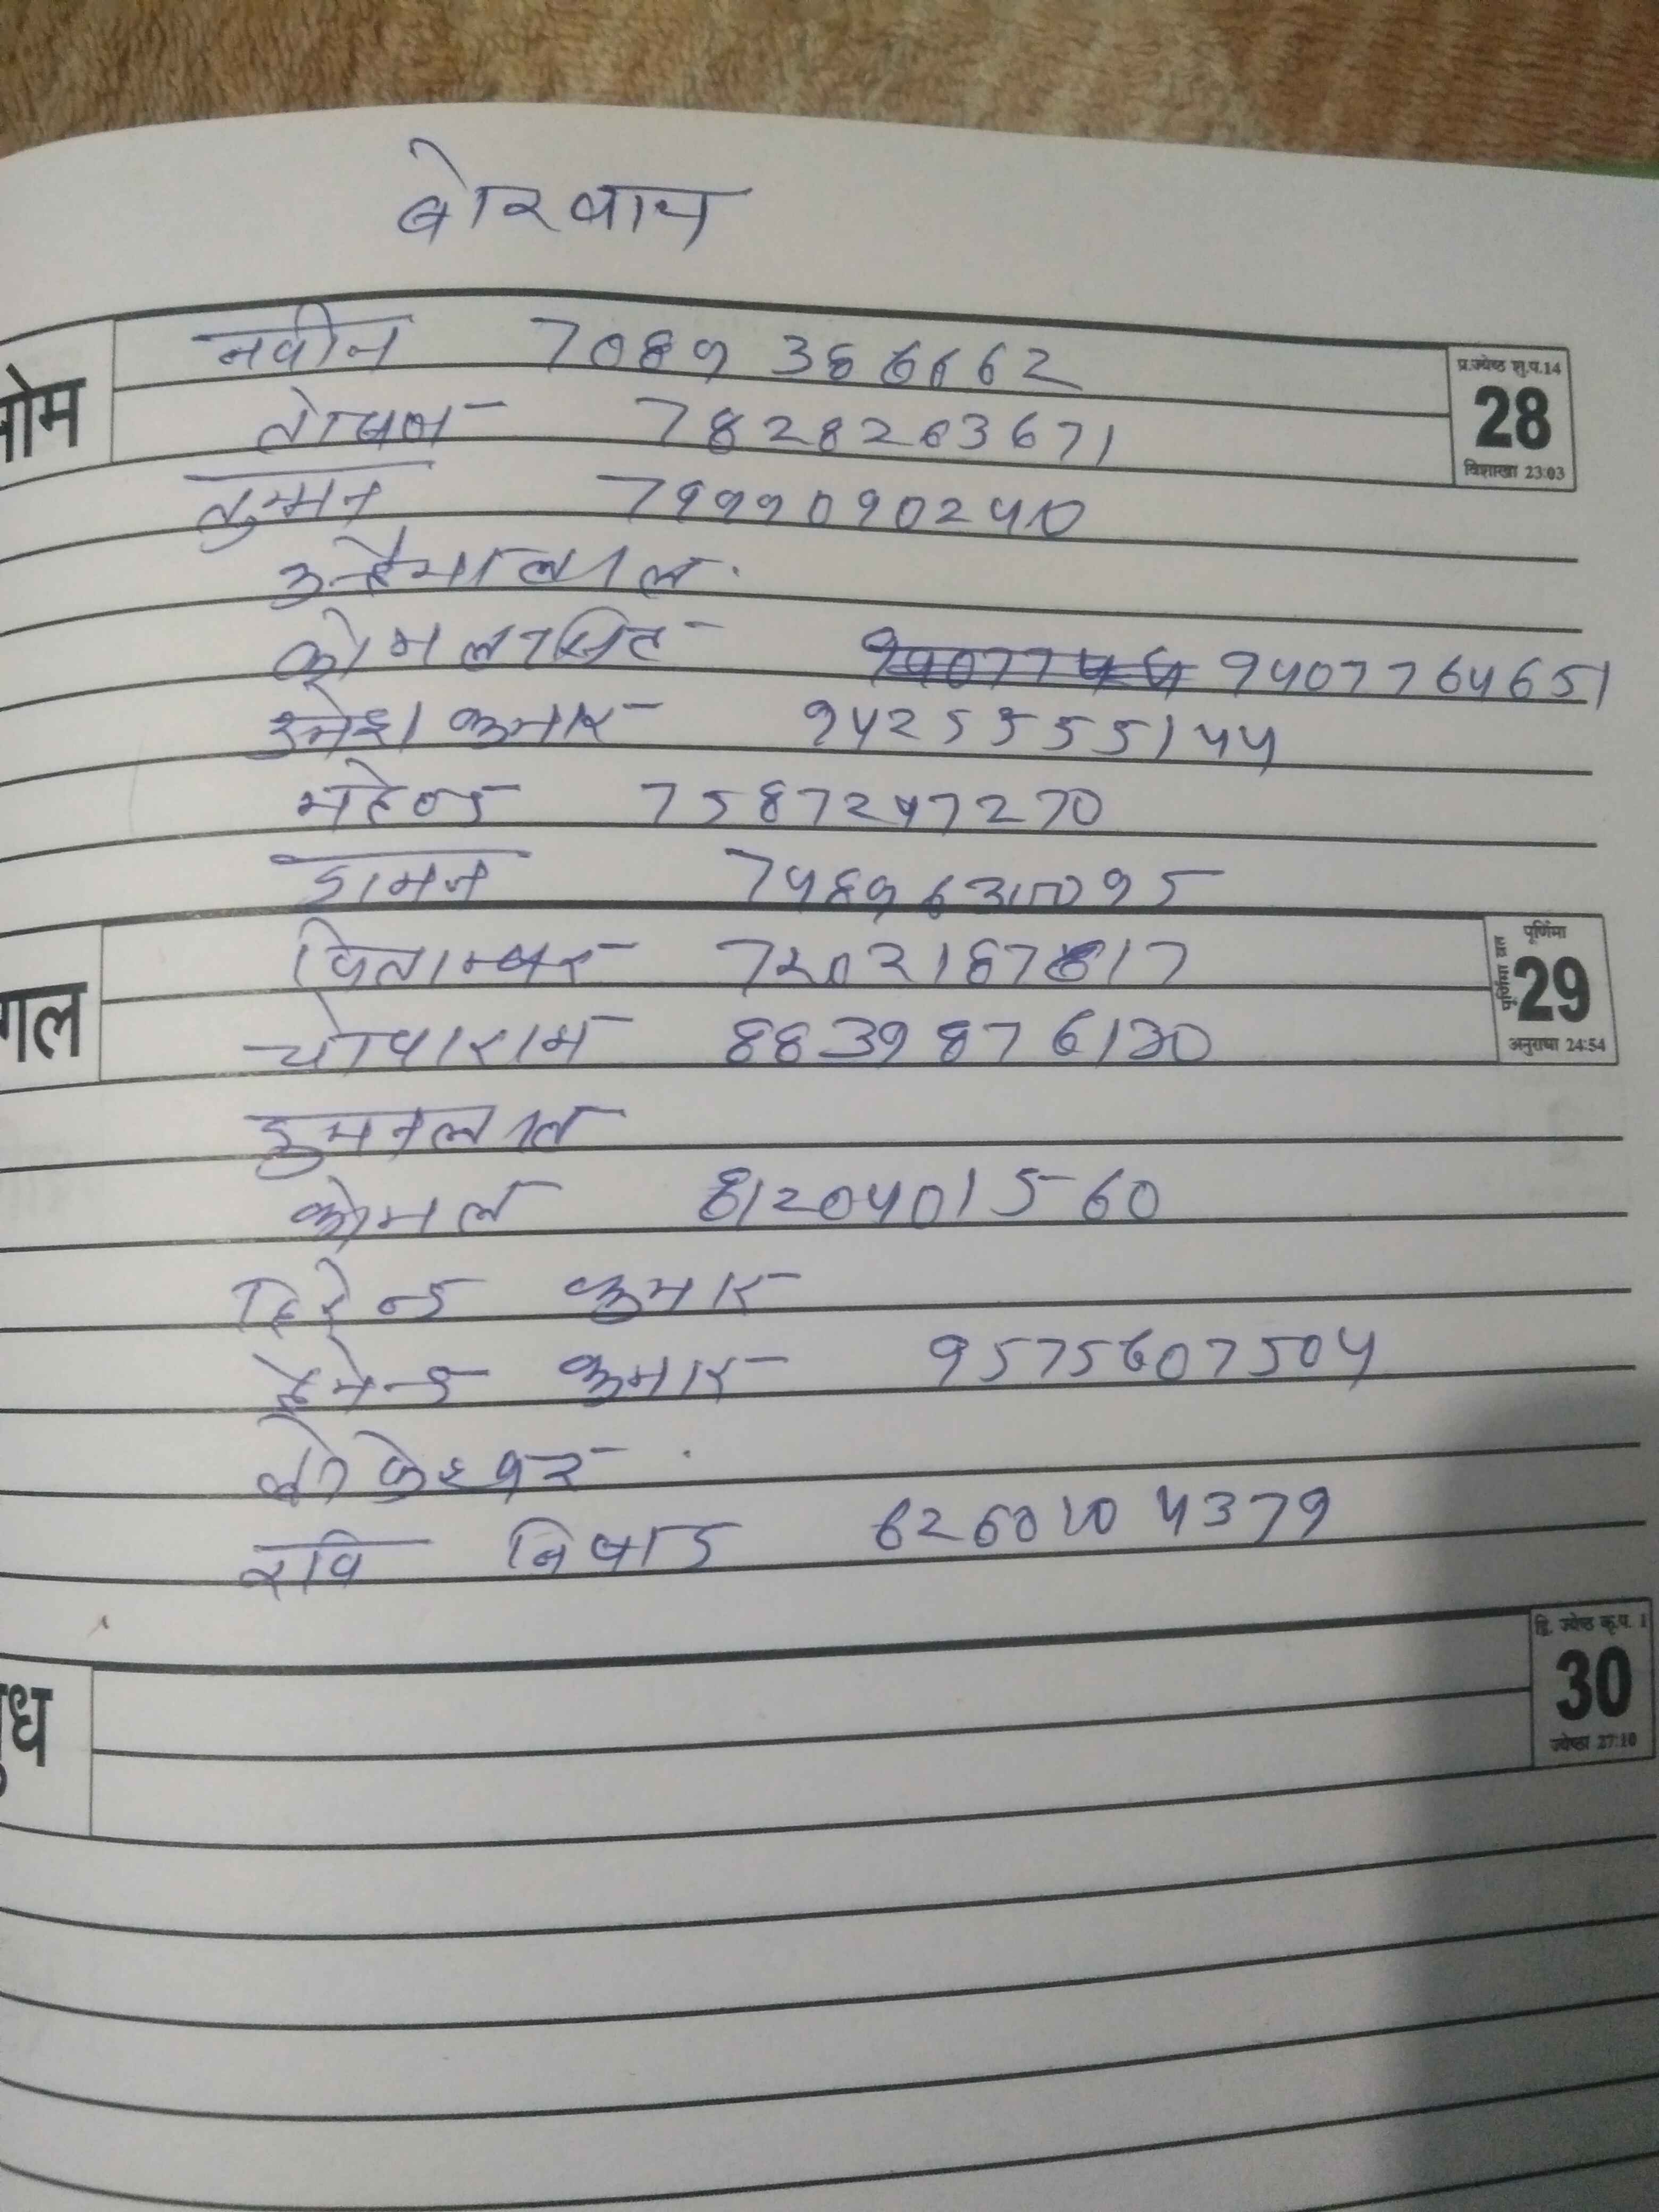 बोरवाय
नवीन 7089 386662
प्र.ज्येष्ठ शु.प.14
सोम
28
तोषण 7828263671
विशाखा 23:03
तुम्मन 7999090240
कन्हैयालाल
कोमल सिंह 9407764651
उमेश कुमार 9425555144
महेन्द्र 7587247270
डामन
पूर्णिमा
पिताम्बर 7202187817
मंगल
29
पूर्णिमा व्रत
चोवाराम 8839876130
अनुराधा 24:54
डुमनलाल
कोमल 8120401560
हिरेन्द्र कुमार
हेमेन्द्र कुमार 9575607504
लोकेश्वर
रवि निषाद 6260104379
द्वि. ज्येष्ठ कृ.प. 1
बुध
30
ज्येष्ठा 27:10